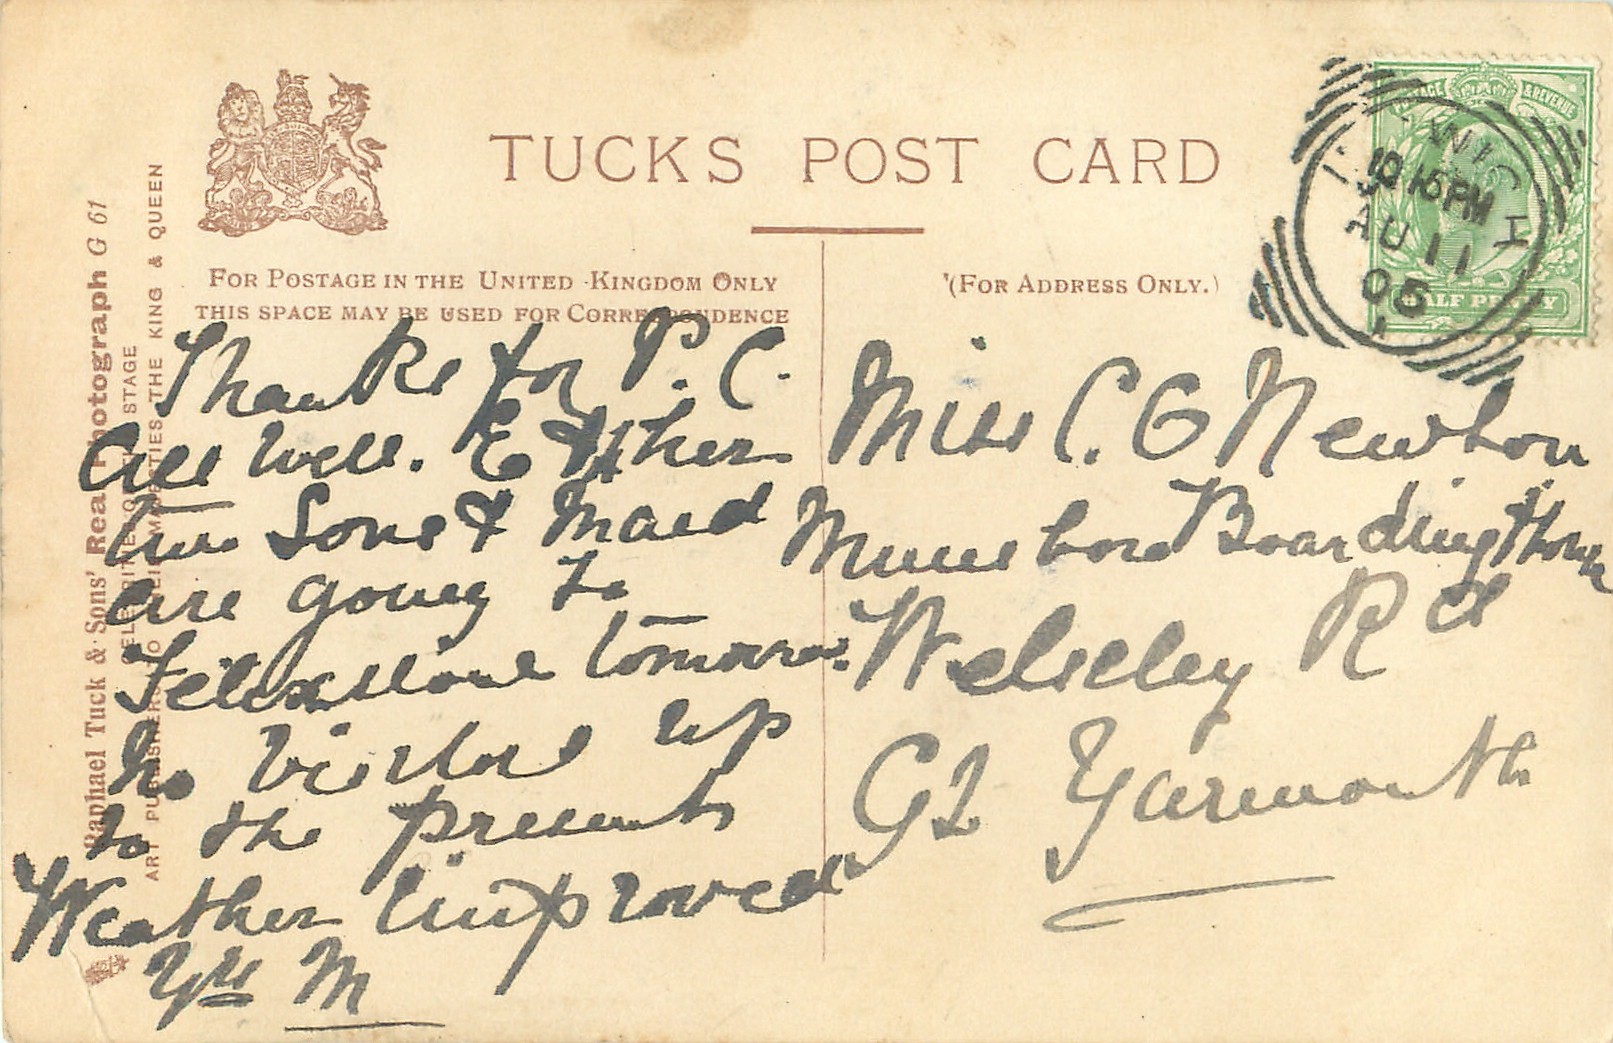 TUCKS POST CARD
FOR POSTAGE IN THE UNITED KINGDOM ONLY
THIS SPACE MAY BE USED FOR CORRESPONDENCE
(FOR ADDRESS ONLY.)
Raphael Tuck & Sons' Real Photograph G 61
CELEBRITIES OF THE STAGE
ART PUBLISHERS TO THEIR MAJESTIES THE KING & QUEEN
POSTAGE & REVENUE
HALF PENNY
WICH
10 15 PM
AU 11
05
Thanks for P. C.
All well. E & her
two Sons & Maid
are going to
Felixstowe tomorrow.
No Visitors up
to the present
Weather improved
Yrs M
Miss C. G Newton
Boarding House
Wellesley Rd
Gt Yarmouth